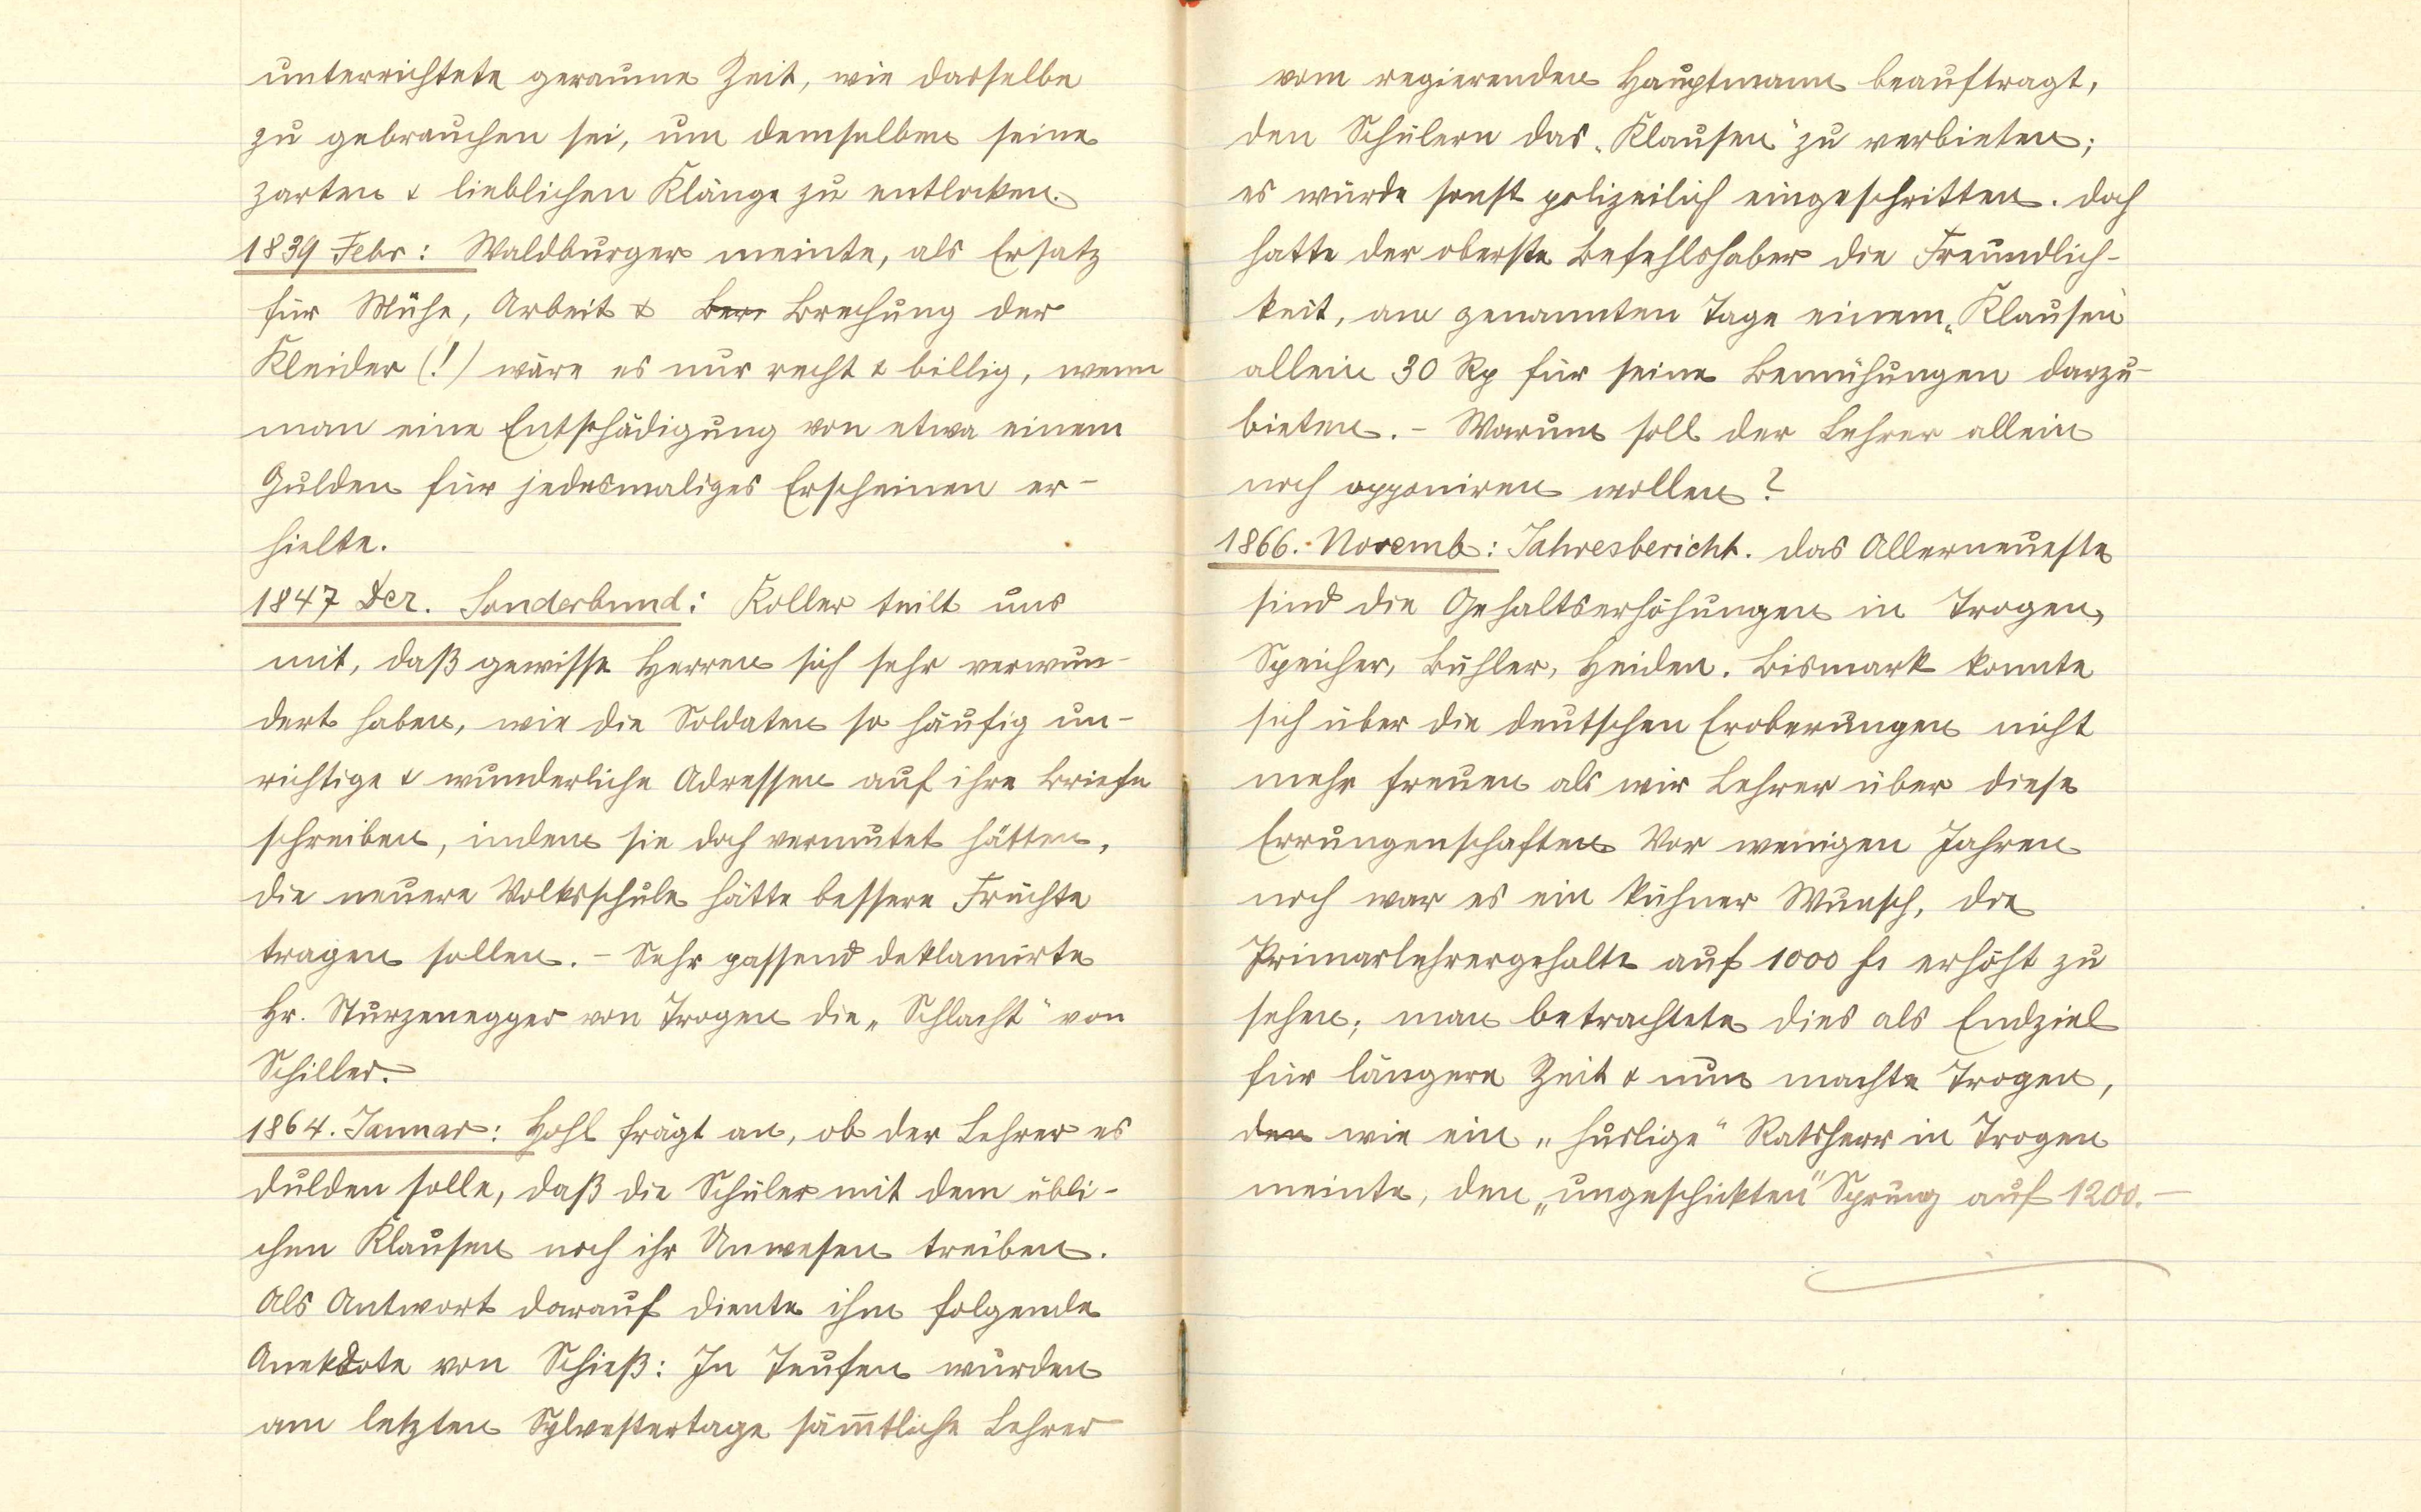 unterrichtete geraume Zeit, wie dasselbe
zu gebrauchen sei, um demselben seine
zarten & lieblichen Klänge zu entlocken.
1839 Febr: Waldburger meinte, als Ersatz
für Mühe, Arbeit & Ber Brechung der
Kleider (!) wäre es nur recht & billig, wenn
man eine Entschädigung von etwa einem
Gulden für jedesmaliges Erscheinen er-
hielte.
1847 Dez. Sonderbund: Koller teilt uns
mit, daß gewisse Herren sich sehr verwun-
dert haben, wie die Soldaten so häufig un-
richtige & wunderliche Adressen auf ihre Briefe
schreiben, indem sie doch vermutet hätten,
die neuere Volksschule hätte bessere Früchte
tragen sollen. - Sehr passend deklamirte
Hr. Sturzenegger von Trogen die „Schlacht" von
Schiller.
1864. Januar: Hohl frägt an, ob der Lehrer es
dulden solle, daß die Schüler mit dem übli-
chen Klausen noch ihr Unwesen treiben.
Als Antwort darauf diente ihm folgende
Anekdote von Schieß: In Teufen wurden
am letzten Sylvestertage säm̅tliche Lehrer
vom regierenden Hauptmann beauftragt,
den Schülern das „Klausen" zu verbieten;
es würde sonst polizeilich eingeschritten. Doch
hatte der oberste Befehlshaber die Freundlich-
keit, am genannten Tage einem „Klausen"
allein 30 Rp für seine Bemühungen darzu-
bieten. - Warum soll der Lehrer allein
noch opponiren wollen?
1866. Novemb: Jahresbericht. Das Allerneueste
sind die Gehaltserhöhungen in Trogen,
Speicher, Bühler, Heiden. Bismark konnte
sich über die deutschen Eroberungen nicht
mehr freuen als wir Lehrer über diese
Errungenschaften Vor wenigen Jahren
noch war es ein kühner Wunsch, die
Primarlehrergehalte auf 1000 fr erhöht zu
sehen; man betrachtete dies als Endziel
für längere Zeit & nun machte Trogen,
den wie ein „huslige" Ratsherr in Trogen
meinte, den „ungeschickten" Sprung auf 1200.-